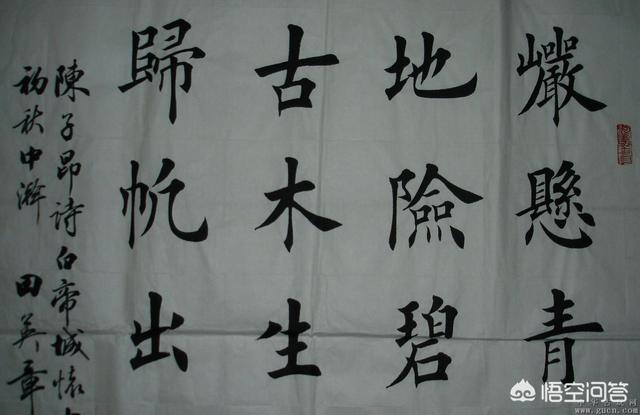 巖懸青
地險碧
古木生
歸帆出
陳子昂詩白帝城懷
初秋中澣 田英章
悟空问答
www.gucn.com